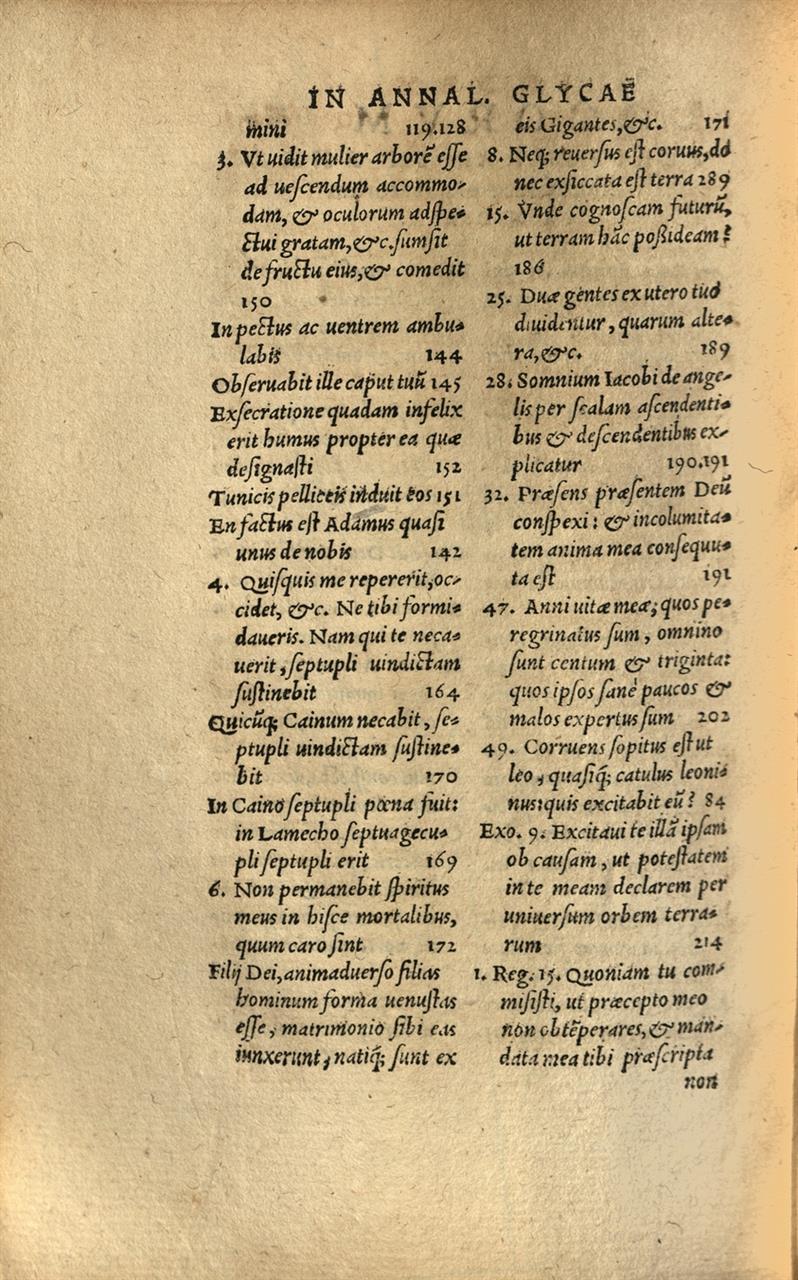 IN ANNAL. GLYCAE
mini 119.128
3. Vt uidit mulier arborē esse
ad uescendum accommo-
dam, & oculorum adspe-
ctui gratam, &c. sumsit
de fructu eius, & comedit
150
In pectus ac uentrem ambu-
labis 144
Obseruabit ille caput tuū 145
Exsecratione quadam infelix
erit humus propter ea quæ
designasti 152
Tunicis pelliceis induit eos 151
En factus est Adamus quasi
unus de nobis 142
4. Quisquis me repererit, oc-
cidet, &c. Ne tibi formi-
daueris. Nam qui te neca-
uerit, septupli uindictam
sustinebit 164
Quicūq; Cainum necabit, se-
ptupli uindictam sustine-
bit 170
In Caino septupli pœna fuit:
in Lamecho septuagecu-
pli septupli erit 169
6. Non permanebit spiritus
meus in hisce mortalibus,
quum caro sint 172
Filij Dei, animaduerso filias
hominum forma uenustas
esse, matrimonio sibi eas
iunxerunt, natiq; sunt ex
eis Gigantes, &c. 171
8. Neq; reuersus est coruus, do
nec exsiccata est terra 289
15. Vnde cognoscam futurū,
ut terram hāc possideam?
186
25. Duæ gentes ex utero tuo
diuidentur, quarum alte-
ra, &c. 189
28. Somnium Iacobi de ange-
lis per scalam ascendenti-
bus & descendentibus ex-
plicatur 190.191
32. Præsens præsentem Deū
conspexi: & incolumita-
tem anima mea consequu-
ta est 191
47. Anni uitæ meæ, quos pe-
regrinatus sum, omnino
sunt centum & triginta:
quos ipsos sanè paucos &
malos expertus sum 202
49. Corruens sopitus est ut
leo, quasiq; catulus leoni-
nus: quis excitabit eū? 84
Exo. 9. Excitaui te illā ipsam
ob causam, ut potestatem
in te meam declarem per
uniuersum orbem terra-
rum 214
1. Reg. 15. Quoniam tu com-
misisti, ut præcepto meo
non obtēperares, & man-
data mea tibi præscripta
non